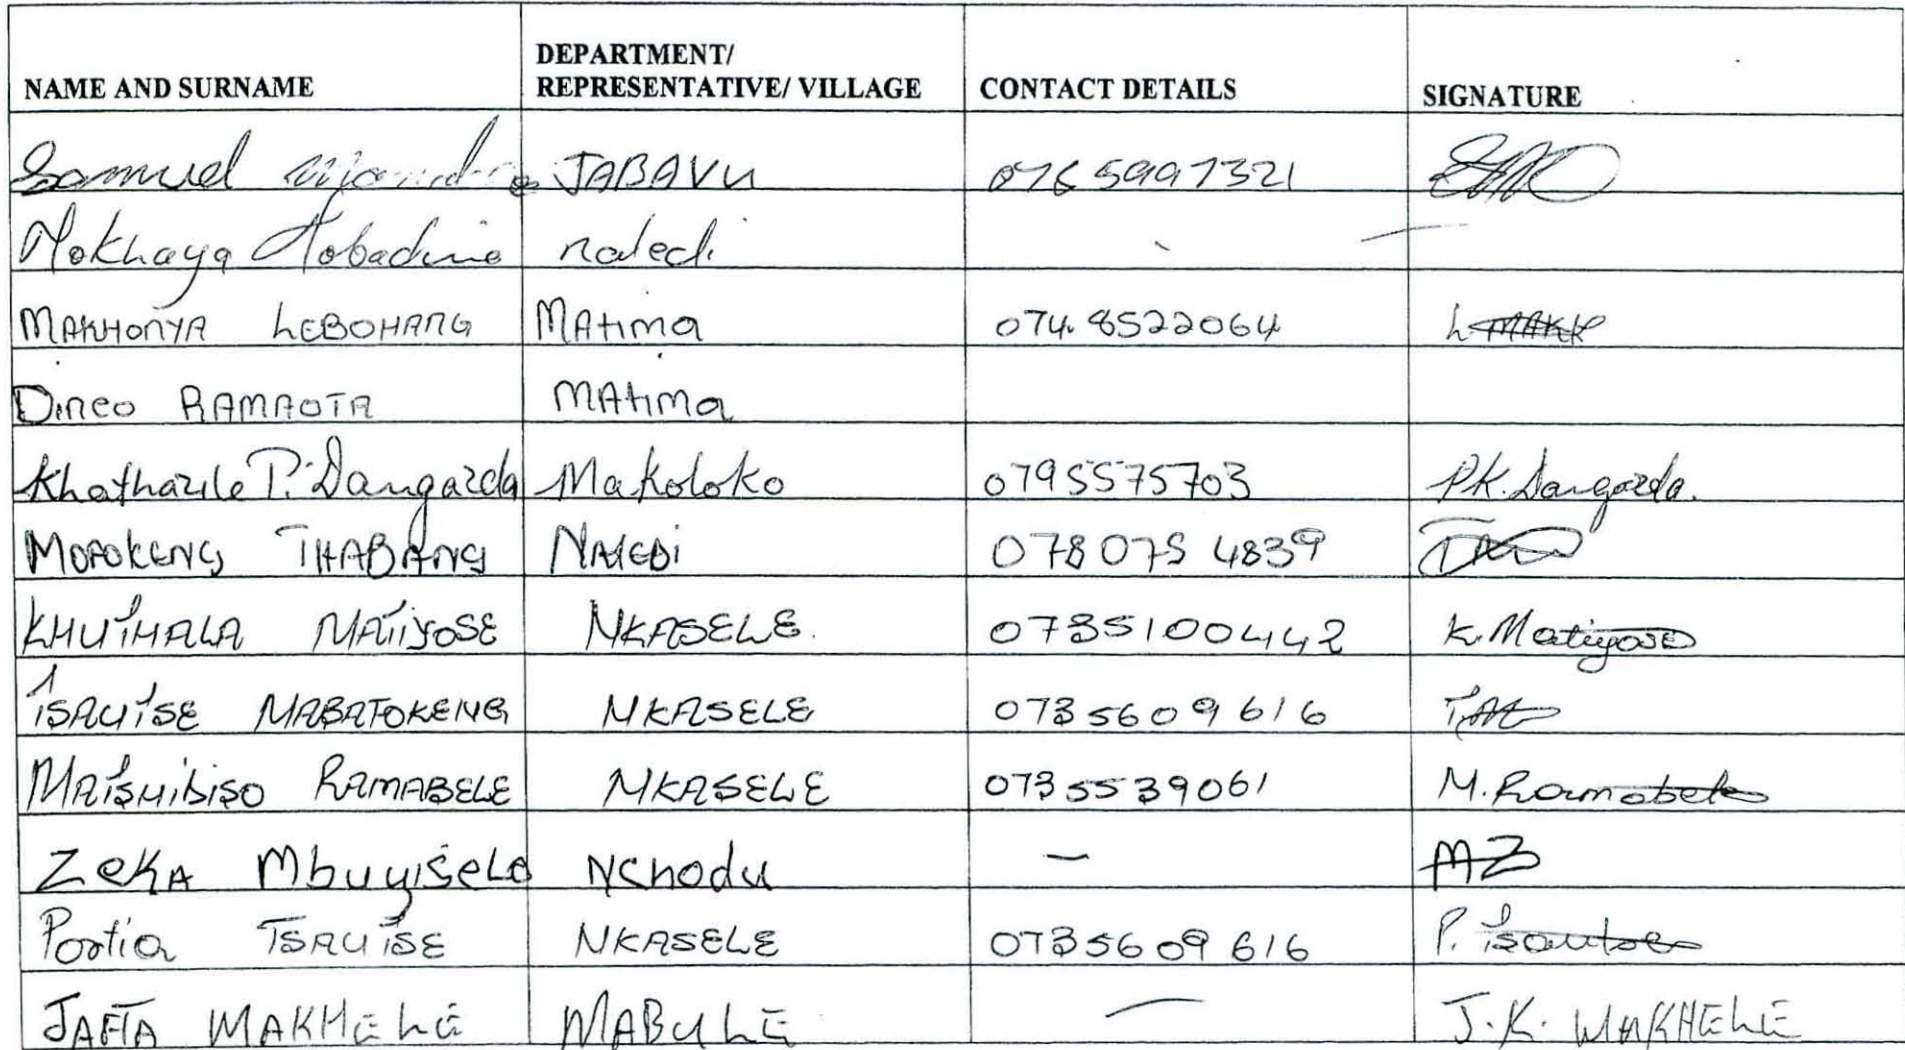 NAME AND SURNAME DEPARTMENT/ REPRESENTATIVE/ VILLAGE CONTACT DETAILS SIGNATURE
Samuel JABAVU 0765997321
Nokhaya naledi -
MAKHONYA LEBOHANG MAtima 074.8522064
Dineo RAMAOTA MAtima
Khathazile P. Dangazela Makoloko 0795575703 PK. Dangazela.
MOFOKENG THABANG NALEDI 078 075 4839
KHUTHALA MATIYOSE NKASELE. 0735100442 K. Matiyose
TSAUTSE MABATOKENG NKASELE 0735609616
MATSHIDISO RAMABELE NKASELE 0735539061 M. Ramabele
ZeKA MbuyiseLo NChodu - MZ
Portia TSAUTSE NKASELE 0735609616 P. Tsautse
JAFTA MAKHELE MABULE - J.K. MAKHELE